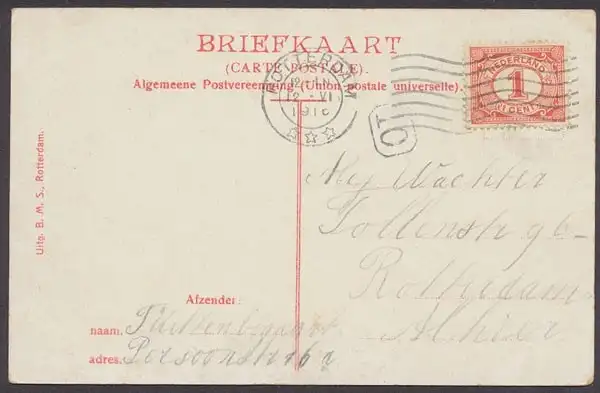 BRIEFKAART
(CARTE POSTALE).
Algemeene Postvereeniging (Union postale universelle).
ROTTERDAM
12 - VI
191
NEDERLAND
1
CENT
TO
Uitg. B. M. S., Rotterdam.
Wachter
Tollenstr 96
Rotterdam
Alhier
Afzender:
naam.
adres. Persoonstr 16